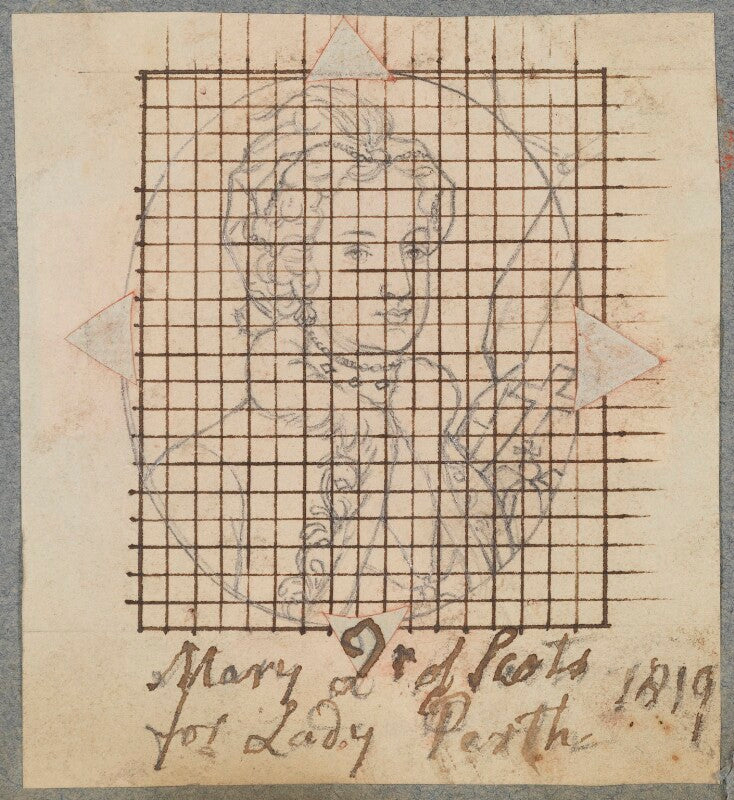 Mary Qr of Scots 1819
for Lady Perth